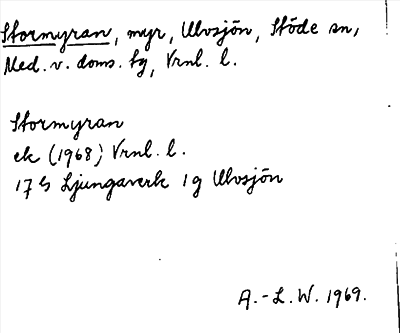 Stormyran, myr, Ulvsjön, Stöde sn,
Med. v. doms. tg, Vrnl. l.
Stormyran
ek (1968) Vrnl. l.
17 G Ljungaverk 1g Ulvsjön
A.-L.W. 1969.